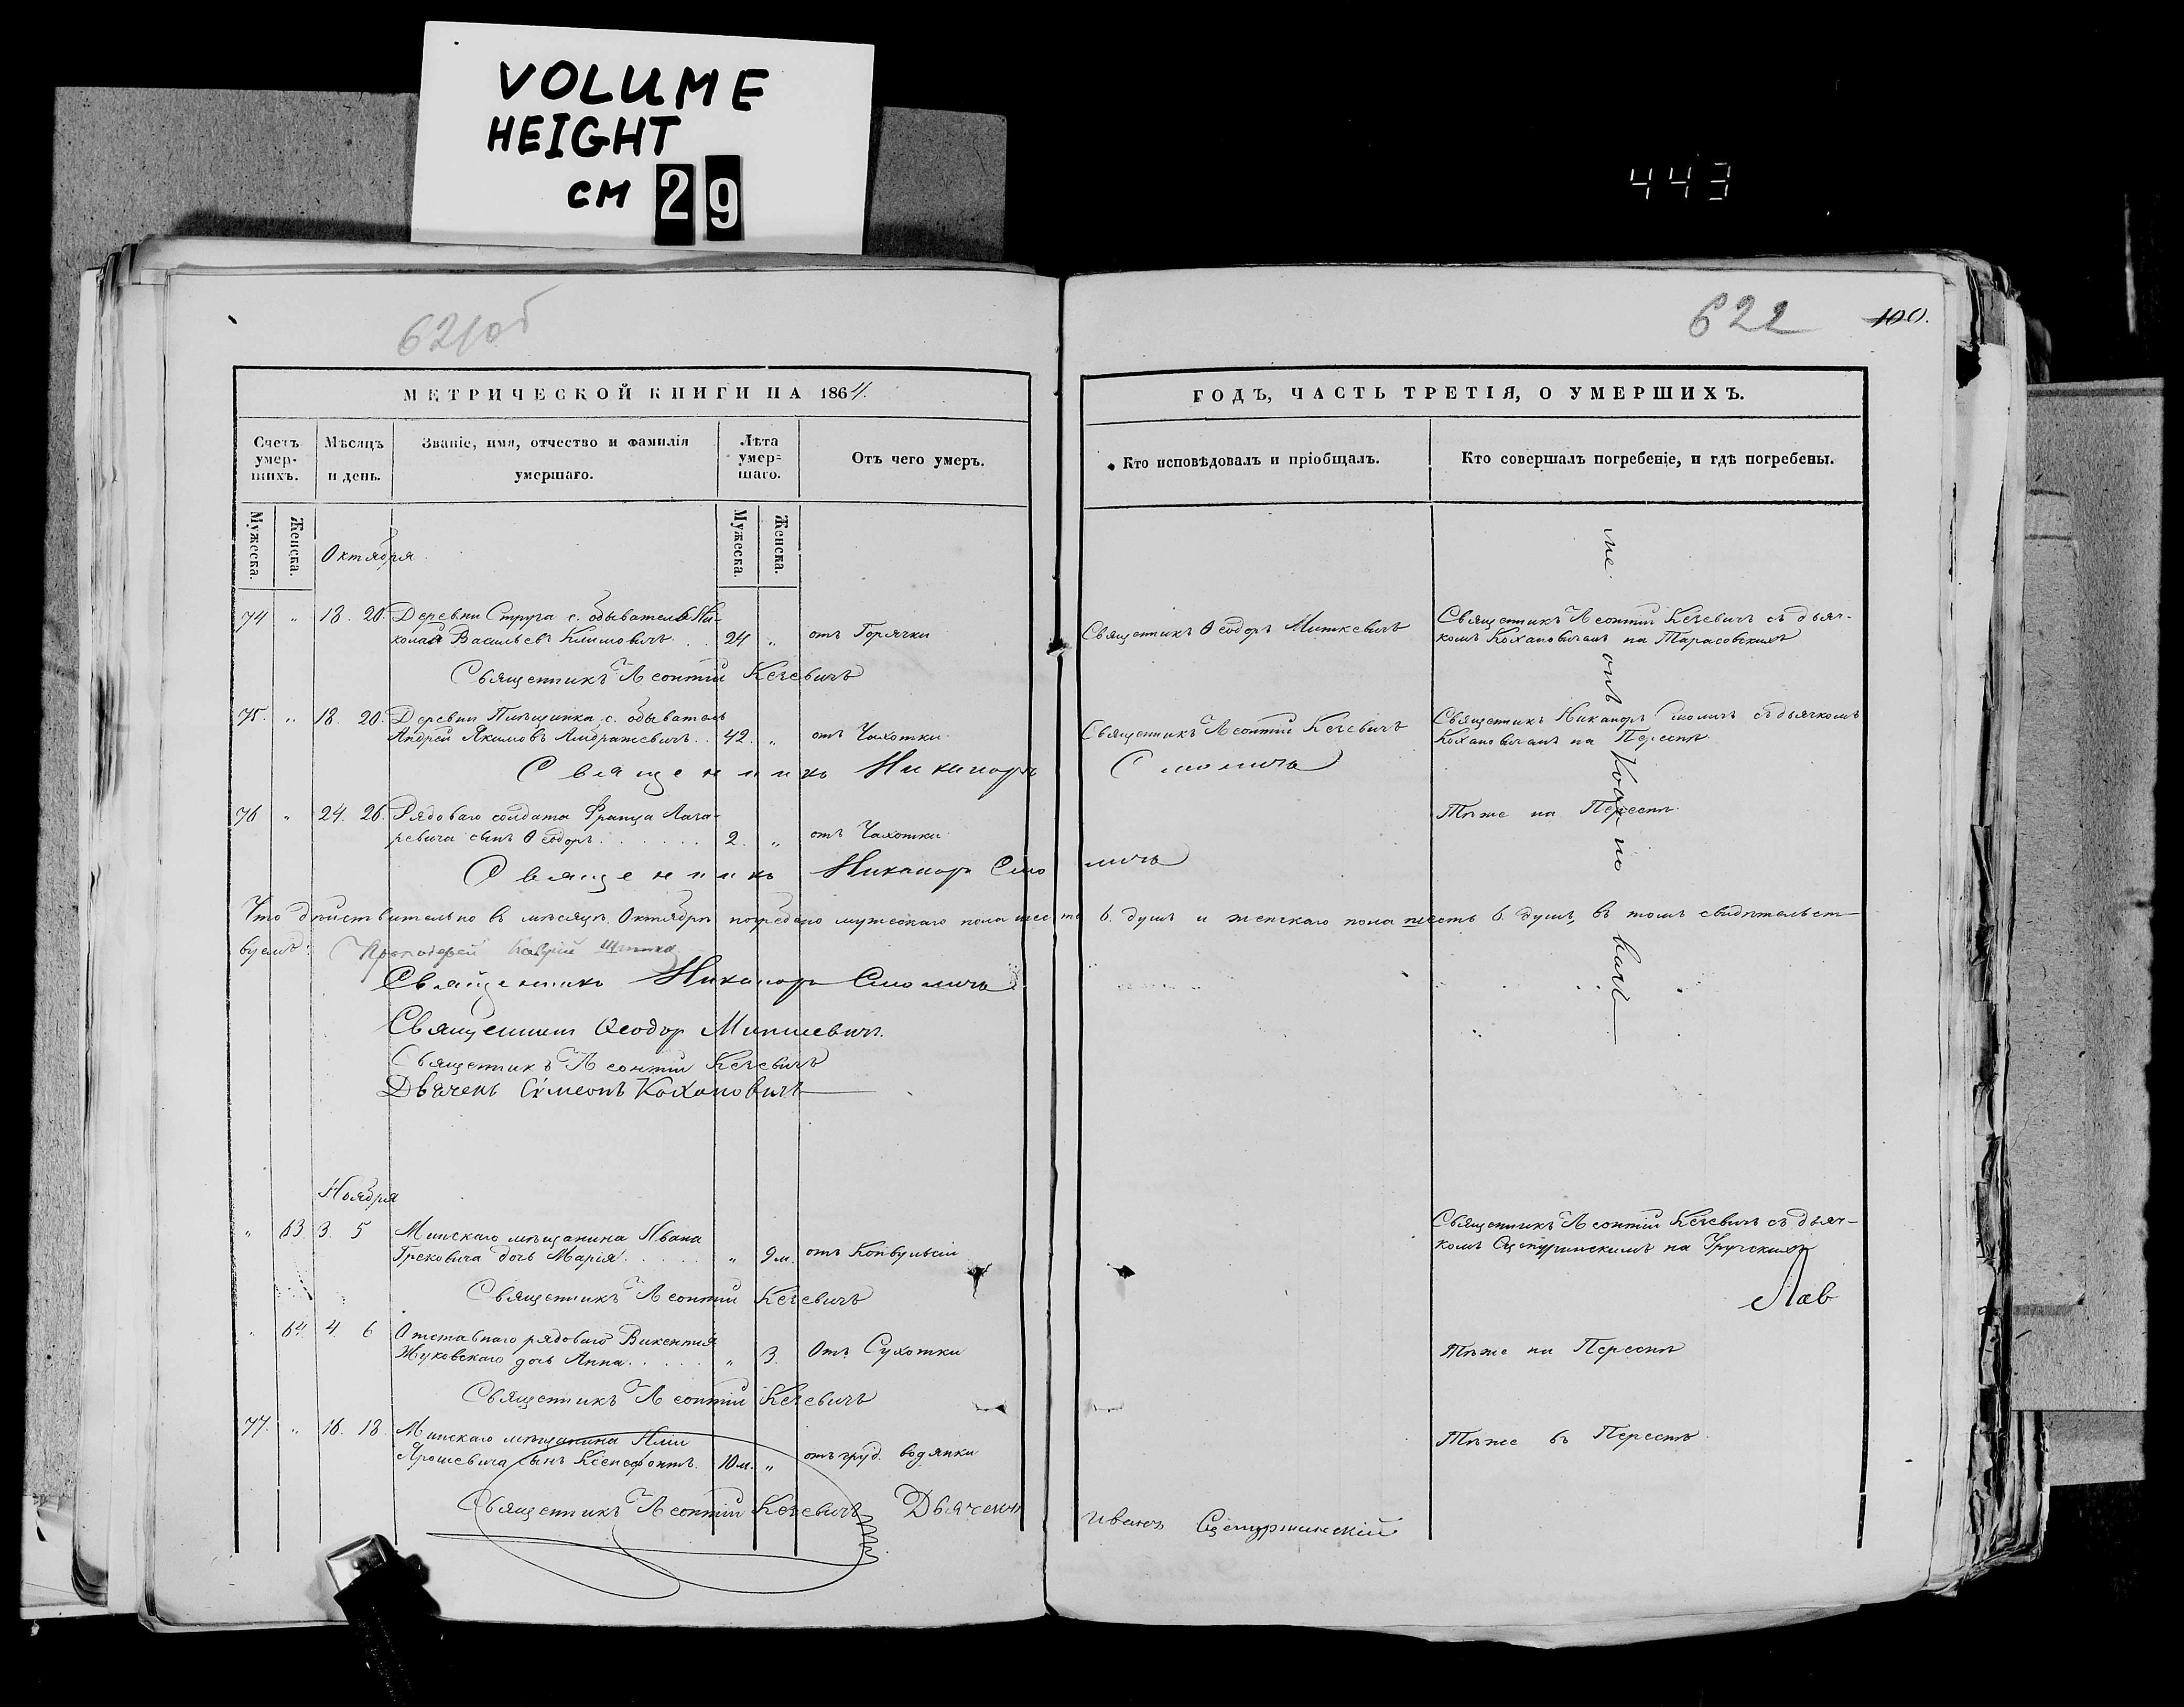 VOLUME
HEIGHT
CM 29
443
621об
622
100.
МЕТРИЧЕСКОЙ КНИГИ НА 1864.
ГОДЪ, ЧАСТЬ ТРЕТІЯ, О УМЕРШИХЪ.
Счетъ умер-шихъ.
Мѣсяцъ и день.
Званіе, имя, отчество и фамилія умершаго.
Лѣта умер-шаго.
Отъ чего умеръ.
Кто исповѣдовалъ и пріобщалъ.
Кто совершалъ погребеніе, и гдѣ погребены.
Мужеска.
Женска.
Мужеска.
Женска.
Октября
74 " 18. 20. Деревни Струга с. обыватель Ни-
колай Васильевъ Климовичъ . . 24 " отъ Горячки
Священникъ Ѳеодоръ Миткевичъ
Священникъ Леонтій Кечевичъ съ дьяч-
комъ Кохановичемъ на Тарасовскихъ
Священникъ Леонтій Кечевичъ
75. " 18. 20. Деревни с. обыватель
Андрей Якимовъ . . 42. " отъ Чахотки
Священникъ Леонтій Кечевичъ
Священникъ Никаноръ Смоличъ съ дьячкомъ
Кохановичемъ на Переспѣ
Священникъ Никаноръ Смоличъ
76 " 24. 26. Рядоваго солдата Франца Лаза-
ревича сынъ Ѳеодоръ . . . . . . 2. " отъ Чахотки
Тѣже на Переспѣ
Священникъ Никаноръ Смоличъ
Что дѣйствительно въ мѣсяцѣ Октябрѣ погребено мужескаго пола шесть 6. душъ и женскаго пола шесть 6. душъ, въ томъ свидѣтельст-
вуемъ:
Священникъ Никаноръ Смоличъ
Священникъ Ѳеодор Миткевичъ.
Священникъ Леонтій Кечевичъ
Дьячекъ Симеонъ Кохановичъ
Ноября
" 63. 3. 5 Минскаго мѣщанина Ивана
Грековича дочь Марія . . . . . " 9 м. отъ Конвульсіи
Священникъ Леонтій Кечевичъ съ дьяч-
комъ на
Священникъ Леонтій Кечевичъ
Лав
" 64. 4. 6 Отставнаго рядоваго Викентія
Жуковскаго дочь Анна . . . . . " 3. Отъ Сухотки
Тѣже на Переспѣ
Священникъ Леонтій Кечевичъ
77. " 16. 18. Минскаго мѣщанина Иліи
Ярошевича сынъ Ксенофонтъ. 10 м. " отъ груд. водянки
Тѣже въ Переспѣ
Священникъ Леонтій Кечевичъ Дьячекъ Иванъ